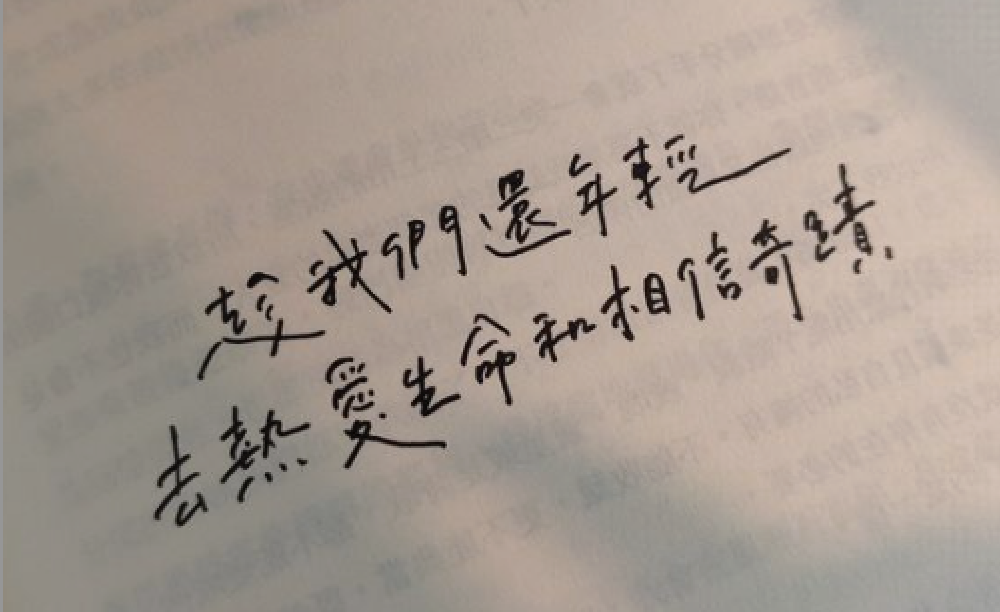 趁我們還年輕
去熱愛生命和相信奇蹟